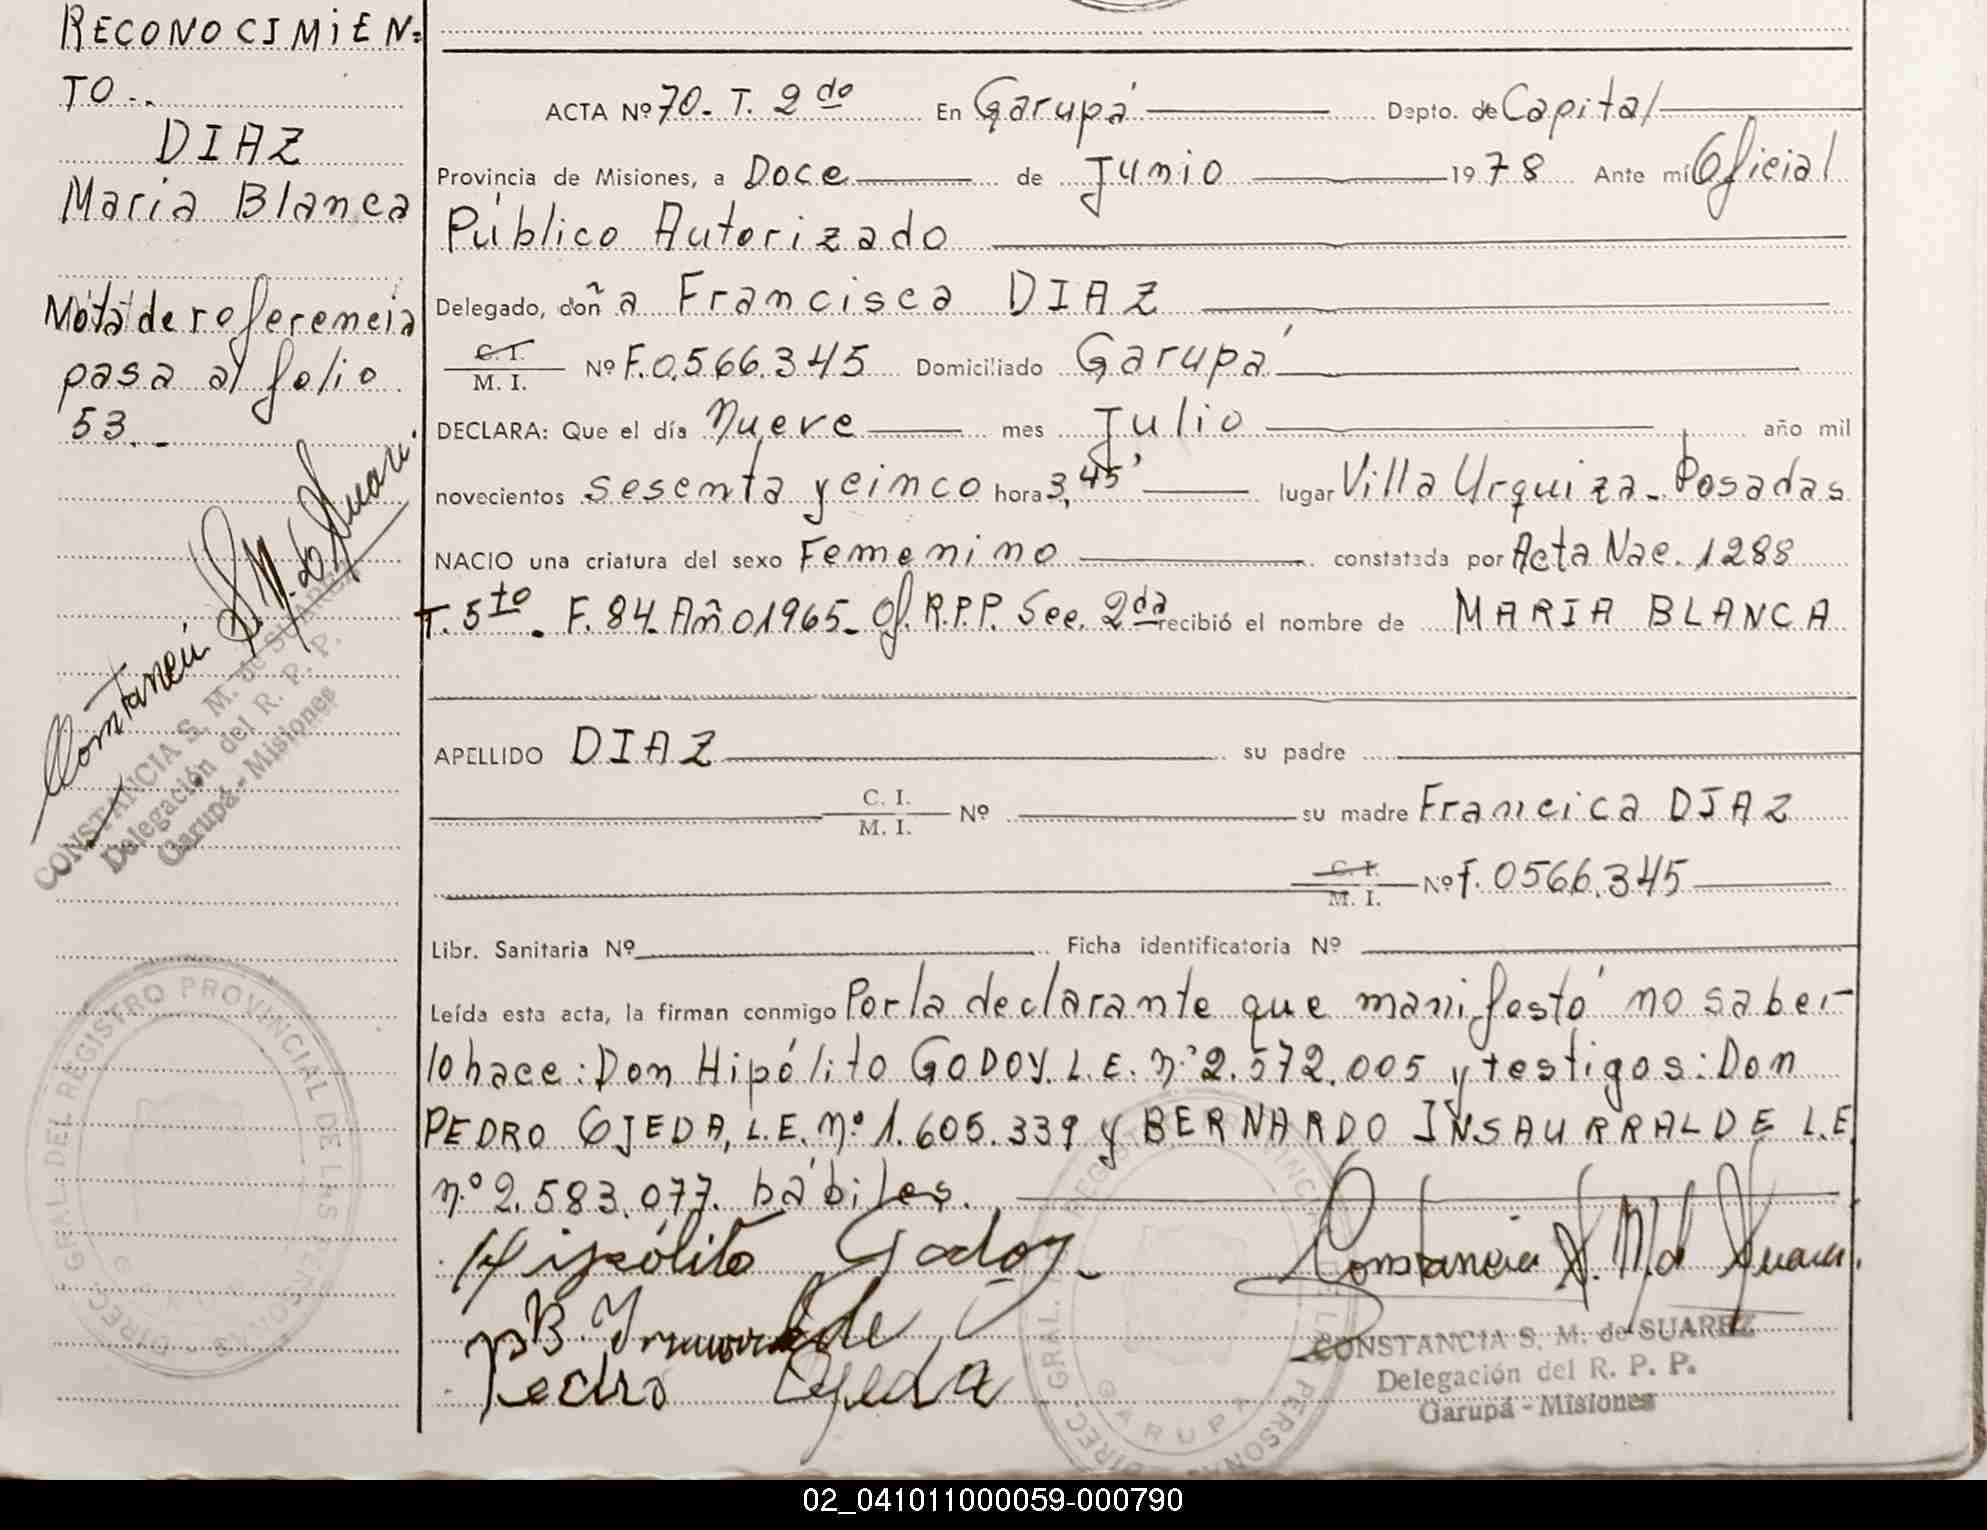 RECONOCIMIEN=
TO-.
DIAZ
Maria Blanca
Nota de referencia
pasa al folio
53.-
Constancia S. M. de Suarez
CONSTANCIA S. M. de SUAREZ
Delegación del R. P. P.
Garupá - Misiones
DIREC. GRAL. DEL REGISTRO PROVINCIAL DE LAS PERSONAS
GARUPA
ACTA Nº 70. T. 2do En Garupá Depto. de Capital
Provincia de Misiones, a Doce de Junio 1978 Ante mí Oficial
Público Autorizado
Delegado, doña Francisca DIAZ
C. I.
M. I. Nº F.0.566.345 Domiciliado Garupá
DECLARA: Que el día Nueve mes Julio año mil
novecientos sesenta y cinco hora 3,45' lugar Villa Urquiza - Posadas
NACIO una criatura del sexo Femenino constatada por Acta Nac. 1288
T. 5to. F. 84. Año 1965- Of. R.P.P. Sec. 2da recibió el nombre de MARIA BLANCA
APELLIDO DIAZ su padre
C. I.
M. I. Nº su madre Francica DIAZ
C. I.
M. I. Nº F. 0566.345
Libr. Sanitaria Nº Ficha identificatoria Nº
Leída esta acta, la firman conmigo Por la declarante que manifestó no saber
lo hace: Don Hipólito GODOY. L.E. nº 2.572.005 y testigos: Don
PEDRO OJEDA, L.E. nº 1.605.339 y BERNARDO INSAURRALDE L.E.
nº 2.583.077. hábiles.
Hipólito Godoy
Constancia S. M. de Suarez
B. Insaurralde
Pedro Ojeda
CONSTANCIA S. M. de SUAREZ
Delegación del R. P. P.
Garupá - Misiones
DIREC. GRAL. DEL REGISTRO PROVINCIAL DE LAS PERSONAS
GARUPA
02_041011000059-000790